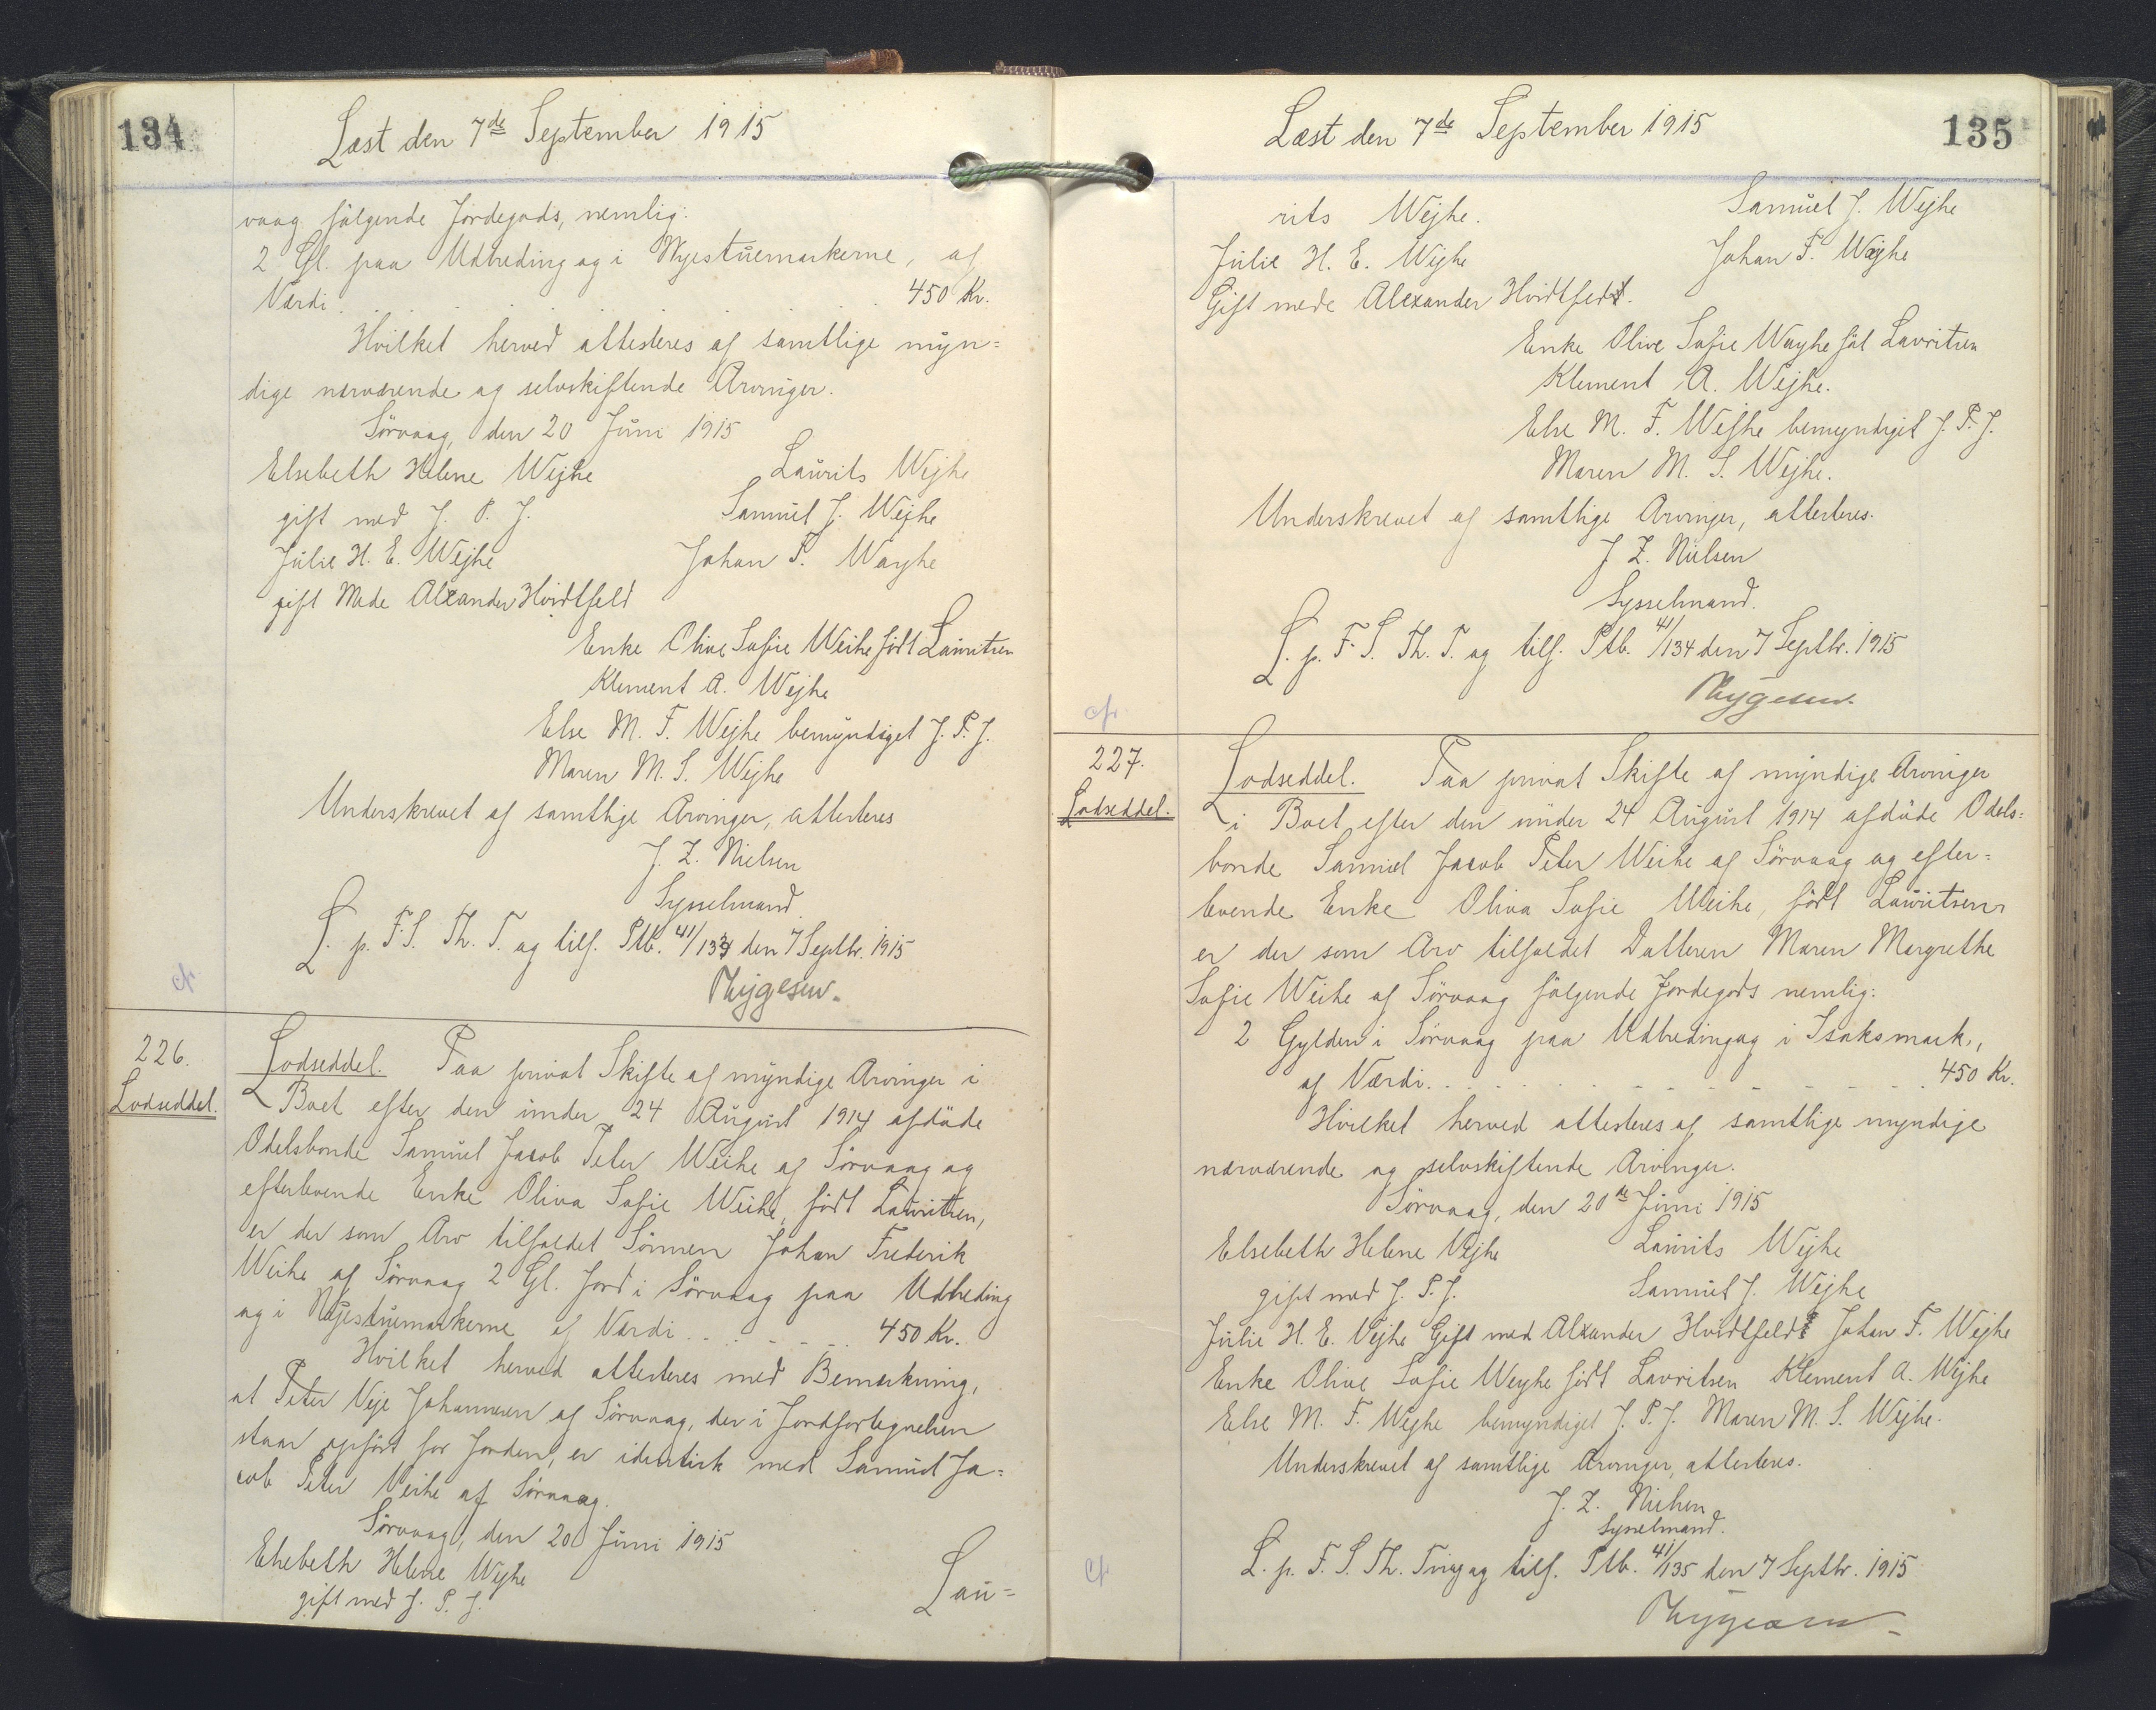 134
Læst den 7de September 1915
vaag følgende Jordegods, nemlig:
2 Gl. paa Udbreding og i Nyestuemarkerne, af
Værdi . . . . . . 450 Kr.
Hvilket herved attesteres af samtlige myn=
dige nærværende og selvskiftende Arvinger.
Sörvaag, den 20 Juni 1915
Elsebeth Helene Wejhe Laurits Wejhe
gift med J. P. J. Samuel J. Wejhe
Julie H. E. Wejhe Johan F. Wayhe
gift Mede Alexander Hvidtfeld
Enke Olive Sofie Weihe födt Lauritsen
Klement A. Wejhe
Else M. F. Wejhe bemyndiget J. P. J.
Maren M. S. Wejhe
Underskrevet af samtlige Arvinger, attesteres
J. Z. Nielsen
Sysselmand.
L. p. F. S. Th. T. og tilf. Ptb. 41/134 den 7 Septbr. 1915
Thygesen.
226.
Lodseddel.
Lodseddel. Paa privat Skifte af myndige Arvinger i
Boet efter den under 24 August 1914 afdöde
Odelsbonde Samuel Jacob Peter Weihe af Sörvaag og
efterlevende Enke Oliva Sofie Weihe, födt Lauritsen,
er der som Arv tilfaldet Sönnen Johan Frederik
Weihe af Sörvaag 2 Gl. Jord i Sörvaag paa Udbreding
og i Nyestuemarkerne af Værdi . . . . . . 450 Kr.
Hvilket herved attesteres med Bemærkning,
at Peter Veje Johannesen af Sörvaag, der i Jordfortegnelsen
staar opfört for Jorden, er identisk med Samuel Ja=
cob Peter Veihe af Sörvaag.
Sörvaag, den 20 Juni 1915
Elsebeth Helene Wejhe
gift med J. P. J. Lau=
135
Læst den 7de September 1915
rits Wejhe. Samuel J. Wejhe
Julie H. E. Wejhe Johan F. Wejhe
Gift mede Alexander Hvidtfeldt.
Enke Olive Sofie Wayhe föt Lavritsen
Klement A. Wejhe.
Else M. F. Wejhe bemyndiget J. P. J.
Maren M. S. Wejhe.
Underskrevet af samtlige Arvinger, attesteres.
J Z. Nielsen
Sysselmand.
L. p. F. S. Th. T. og tilf. Ptb. 41/134 den 7 Septbr. 1915
Thygesen.
227.
Lodseddel.
Lodseddel. Paa privat Skifte af myndige Arvinger
i Boet efter den under 24 August 1914 afdöde Odels=
bonde Samuel Jacob Peter Weihe af Sörvaag og efter=
levende Enke Oliva Sofie Weihe, födt Lauritsen
er der som Arv tilfaldet Datteren Maren Margrethe
Sofie Weihe af Sörvaag følgende Jordegods nemlig:
2 Gylden i Sörvaag paa Udbreding og i Isaksmark,
af Værdi . . . . . . 450 Kr.
Hvilket herved attesteres af samtlige myndige
nærværende og selvskiftende Arvinger.
Sörvaag, den 20de Juni 1915
Elsebeth Helene Vejhe Laurits Wejhe
gift med J. P. J. Samuel J. Wejhe
Julie H. E. Vejhe Gift med Alxander Hvidtfeldt Johan F. Wejhe
Enke Olive Sofie Weyhe födt Lavritsen Klement A. Wejhe
Else M. F. Wejhe bemyndiget J. P. J. Maren M. S. Wejhe.
Underskrevet af samtlige Arvinger, attesteres.
J. Z. Nielsen
Sysselmand.
L. p. F. S. Th. Ting og tilf. Ptb. 41/135 den 7 Septbr. 1915
Thygesen